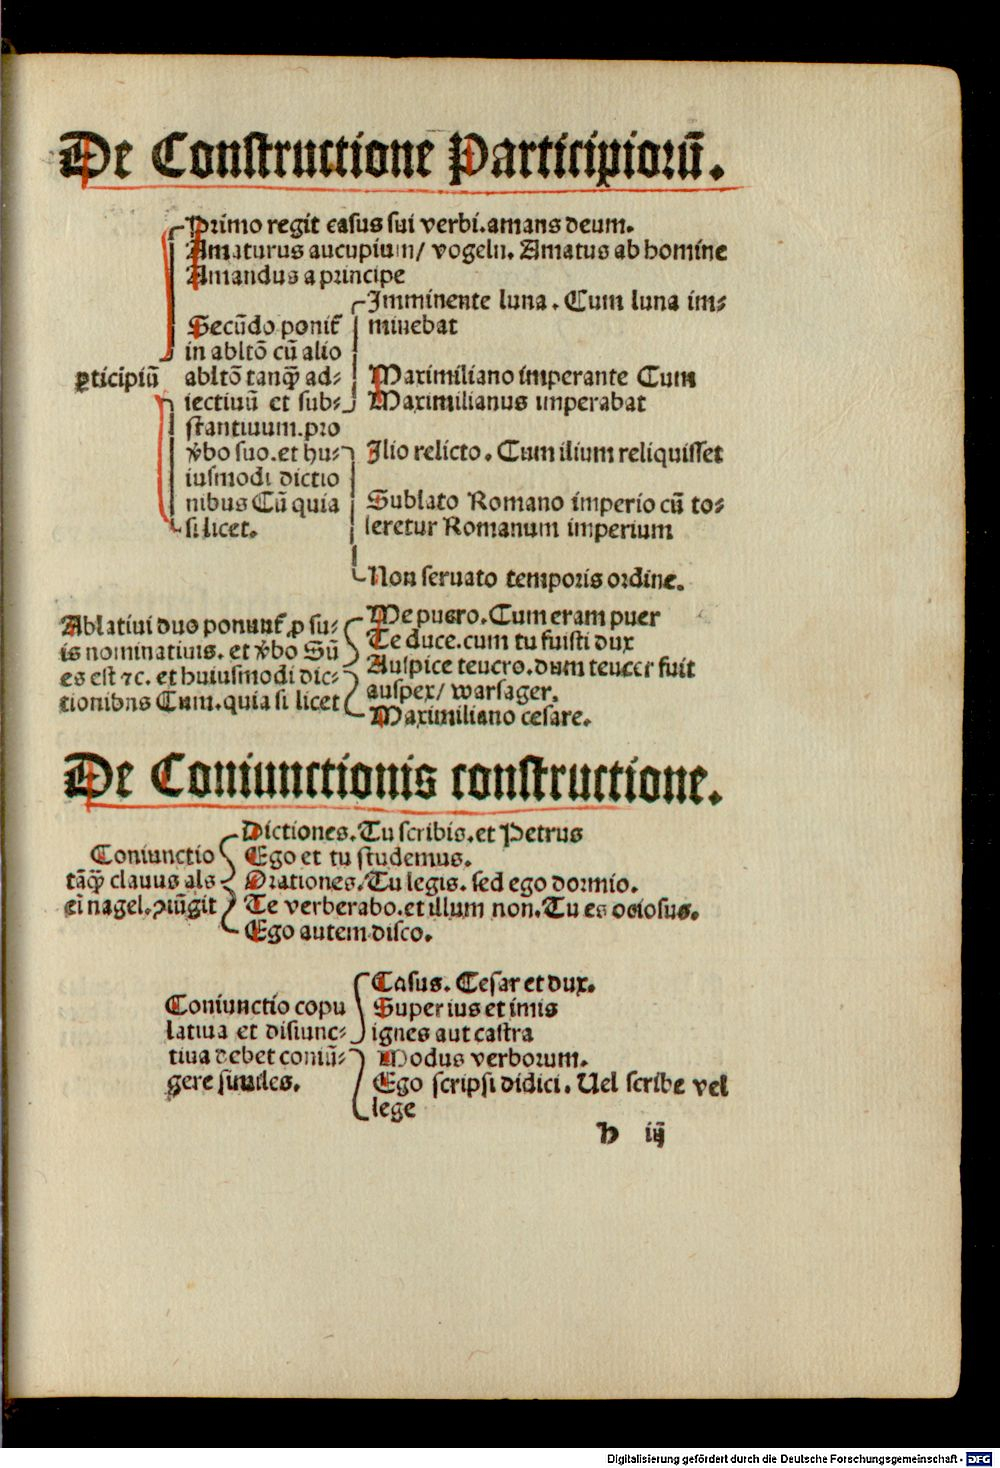 De Constructione Participiorū.
Primo regit casus sui verbi.amans deum.
Amaturus aucupium/ vogeln. Amatus ab homine
Amandus a principe
ꝑticipiū
Secūdo ponit̄
in abltō cū alio
abltō tanq̄ ad⸗
iectiuū et sub⸗
stantiuum.pro
v̄bo suo.et hu⸗
iusmodi dictio
nibus Cū quia
si licet.
Imminente luna. Cum luna im⸗
minebat
Maximiliano imperante Cum
Maximilianus imperabat
Ilio relicto. Cum ilium reliquisset
Sublato Romano imperio cū to⸗
leretur Romanum imperium
Non seruato temporis ordine.
Ablatiui duo ponunt̄ ꝓ su⸗
is nominatiuis. et v̄bo Sū
es est ⁊c. et huiusmodi dic⸗
tionibus Cum.quia si licet
Me puero.Cum eram puer
Te duce.cum tu fuisti dux
Auspice teucro.dum teucer fuit
auspex/ warsager.
Maximiliano cesare.
De Coniunctionis constructione.
Coniunctio
tāq̄ clauus als
eī nagel.ꝯiūgit
Dictiones.Tu scribis.et Petrus
Ego et tu studemus.
Orationes.Tu legis. sed ego dormio.
Te verberabo.et illum non.Tu es ociosus.
Ego autem disco.
Coniunctio copu
latiua et disiunc⸗
tiua debet coniū⸗
gere similes.
Casus. Cesar et dux.
Superius et imis
ignes aut castra
Modus verborum.
Ego scripsi didici. Uel scribe vel
lege
b iij
Digitalisierung gefördert durch die Deutsche Forschungsgemeinschaft - DFG